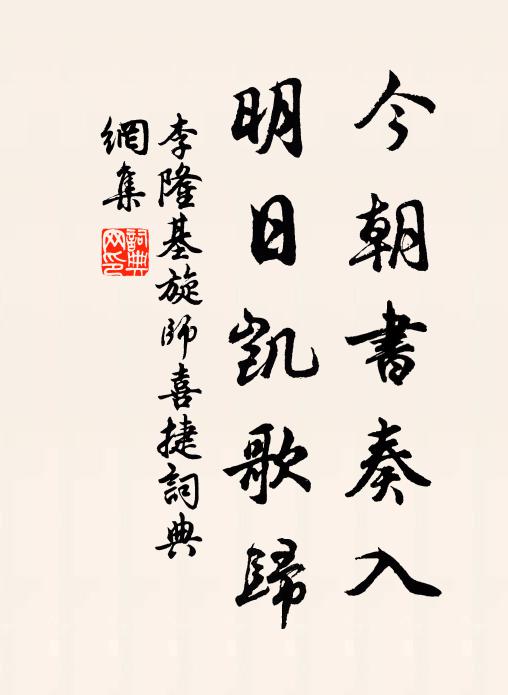 今朝書奏入
明日凱歌歸
李隆基旋師喜捷詞典
網集
詞典
网印